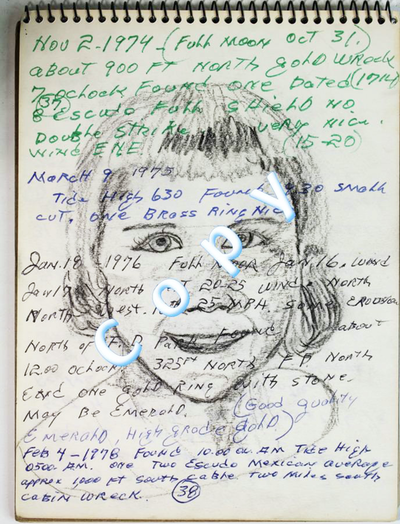 Nov 2-1974-(Full Moon Oct 31.)
about 900 FT North gold Wreck
7-oclock Found one Dated (1714)
(37)
8 escudo Full Shield No
Double Strike very nice.
Wind ENE (15-20)
March 9 1975
Tide High 630 Found 430 small
cut. one Brass Ring Nic
Jan. 18 1976 Full Moon Jan 16. Wind
Jan 17 North AT 20-25 Wind North
North West 25 MPH. some erosion
North of F.P. Park Found about
12.00 oclock 325 FT North F.P. North
End one gold Ring with stone.
May Be Emerald. (Good quality
Emerald, High grade gold)
Feb 4-1978 Found 10.00 a.m Tide High
0500 A.M. one Two Escudo Mexican average
approx 1,000 ft south cable two miles south
cabin wreck. (38)
COPY